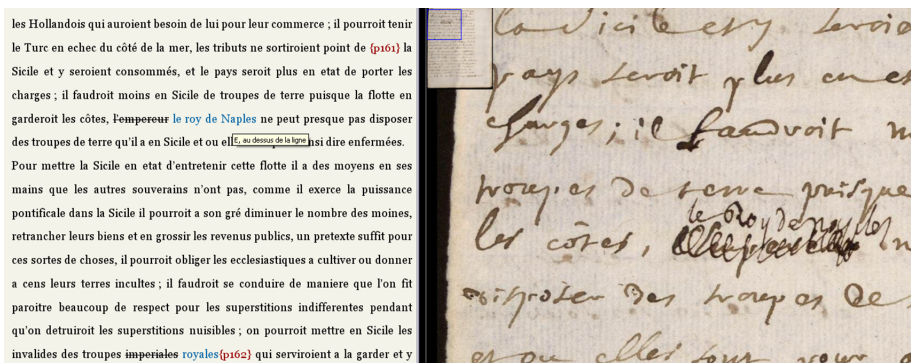 les Hollandois qui auroient besoin de lui pour leur commerce ; il pourroit tenir
le Turc en echec du côté de la mer, les tributs ne sortiroient point de {p161} la
Sicile et y seroient consommés, et le pays seroit plus en etat de porter les
charges ; il faudroit moins en Sicile de troupes de terre puisque la flotte en
garderoit les côtes, l'empereur le roy de Naples ne peut presque pas disposer
des troupes de terre qu'il a en Sicile et ou ell
E, au dessus de la ligne
nsi dire enfermées.
Pour mettre la Sicile en etat d'entretenir cette flotte il a des moyens en ses
mains que les autres souverains n'ont pas, comme il exerce la puissance
pontificale dans la Sicile il pourroit a son gré diminuer le nombre des moines,
retrancher leurs biens et en grossir les revenus publics, un pretexte suffit pour
ces sortes de choses, il pourroit obliger les ecclesiastiques a cultiver ou donner
a cens leurs terres incultes ; il faudroit se conduire de maniere que l'on fit
paroitre beaucoup de respect pour les superstitions indifferentes pendant
qu'on detruiroit les superstitions nuisibles ; on pourroit mettre en Sicile les
invalides des troupes imperiales royales{p162} qui serviroient a la garder et y
la Sicile et y seroie
pays seroit plus en es
charges ; il faudroit m
troupes de terre puisque
le Roy de naples
les côtes,
disposer des troupes de
et ou elles sont pour